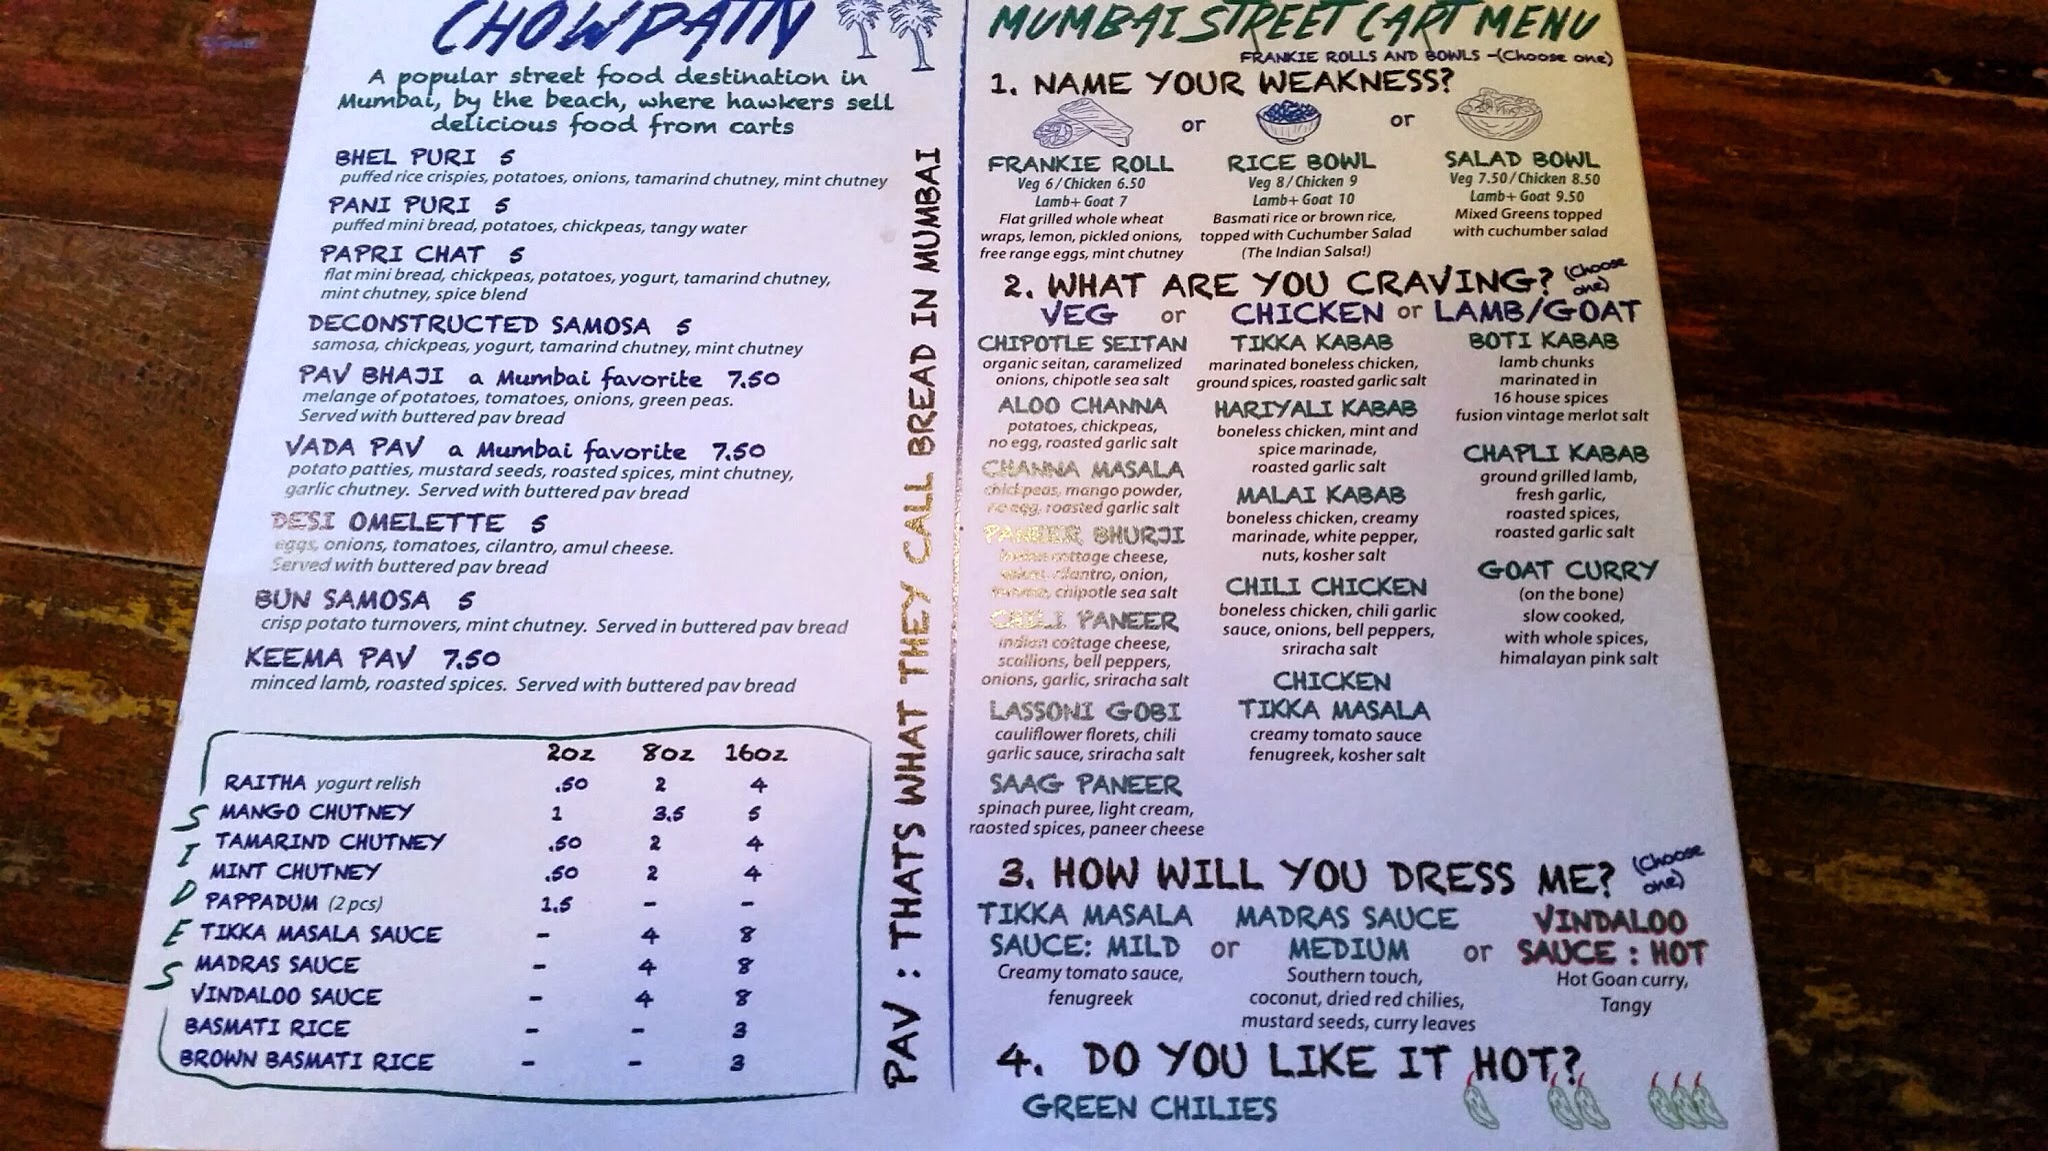 CHOWPATTY
A popular street food destination in
Mumbai, by the beach, where hawkers sell
delicious food from carts
BHEL PURI 5
puffed rice crispies, potatoes, onions, tamarind chutney, mint chutney
PANI PURI 5
puffed mini bread, potatoes, chickpeas, tangy water
PAPRI CHAT 5
flat mini bread, chickpeas, potatoes, yogurt, tamarind chutney,
mint chutney, spice blend
DECONSTRUCTED SAMOSA 5
samosa, chickpeas, yogurt, tamarind chutney, mint chutney
PAV BHAJI a Mumbai favorite 7.50
melange of potatoes, tomatoes, onions, green peas.
Served with buttered pav bread
VADA PAV a Mumbai favorite 7.50
potato patties, mustard seeds, roasted spices, mint chutney,
garlic chutney. Served with buttered pav bread
DESI OMELETTE 5
eggs, onions, tomatoes, cilantro, amul cheese.
Served with buttered pav bread
BUN SAMOSA 5
crisp potato turnovers, mint chutney. Served in buttered pav bread
KEEMA PAV 7.50
minced lamb, roasted spices. Served with buttered pav bread
SIDES
2oz 8oz 16oz
RAITHA yogurt relish .50 2 4
MANGO CHUTNEY 1 3.5 5
TAMARIND CHUTNEY .50 2 4
MINT CHUTNEY .50 2 4
PAPPADUM (2 pcs) 1.5 - -
TIKKA MASALA SAUCE - 4 8
MADRAS SAUCE - 4 8
VINDALOO SAUCE - 4 8
BASMATI RICE - - 3
BROWN BASMATI RICE - - 3
PAV : THATS WHAT THEY CALL BREAD IN MUMBAI
MUMBAI STREET CART MENU
FRANKIE ROLLS AND BOWLS -(Choose one)
1. NAME YOUR WEAKNESS?
or or
FRANKIE ROLL
Veg 6/Chicken 6.50
Lamb+ Goat 7
Flat grilled whole wheat
wraps, lemon, pickled onions,
free range eggs, mint chutney
RICE BOWL
Veg 8/Chicken 9
Lamb+ Goat 10
Basmati rice or brown rice,
topped with Cuchumber Salad
(The Indian Salsa!)
SALAD BOWL
Veg 7.50/Chicken 8.50
Lamb+ Goat 9.50
Mixed Greens topped
with cuchumber salad
2. WHAT ARE YOU CRAVING? (Choose one)
VEG or CHICKEN or LAMB/GOAT
CHIPOTLE SEITAN
organic seitan, caramelized
onions, chipotle sea salt
ALOO CHANNA
potatoes, chickpeas,
no egg, roasted garlic salt
CHANNA MASALA
chickpeas, mango powder,
no egg, roasted garlic salt
PANEER BHURJI
indian cottage cheese,
cilantro, onion,
chipotle sea salt
CHILI PANEER
indian cottage cheese,
scallions, bell peppers,
onions, garlic, sriracha salt
LASSONI GOBI
cauliflower florets, chili
garlic sauce, sriracha salt
SAAG PANEER
spinach puree, light cream,
raosted spices, paneer cheese
TIKKA KABAB
marinated boneless chicken,
ground spices, roasted garlic salt
HARIYALI KABAB
boneless chicken, mint and
spice marinade,
roasted garlic salt
MALAI KABAB
boneless chicken, creamy
marinade, white pepper,
nuts, kosher salt
CHILI CHICKEN
boneless chicken, chili garlic
sauce, onions, bell peppers,
sriracha salt
CHICKEN
TIKKA MASALA
creamy tomato sauce
fenugreek, kosher salt
BOTI KABAB
lamb chunks
marinated in
16 house spices
fusion vintage merlot salt
CHAPLI KABAB
ground grilled lamb,
fresh garlic,
roasted spices,
roasted garlic salt
GOAT CURRY
(on the bone)
slow cooked,
with whole spices,
himalayan pink salt
3. HOW WILL YOU DRESS ME? (Choose one)
TIKKA MASALA
SAUCE: MILD
Creamy tomato sauce,
fenugreek
or
MADRAS SAUCE
MEDIUM
Southern touch,
coconut, dried red chilies,
mustard seeds, curry leaves
or
VINDALOO
SAUCE : HOT
Hot Goan curry,
Tangy
4. DO YOU LIKE IT HOT?
GREEN CHILIES